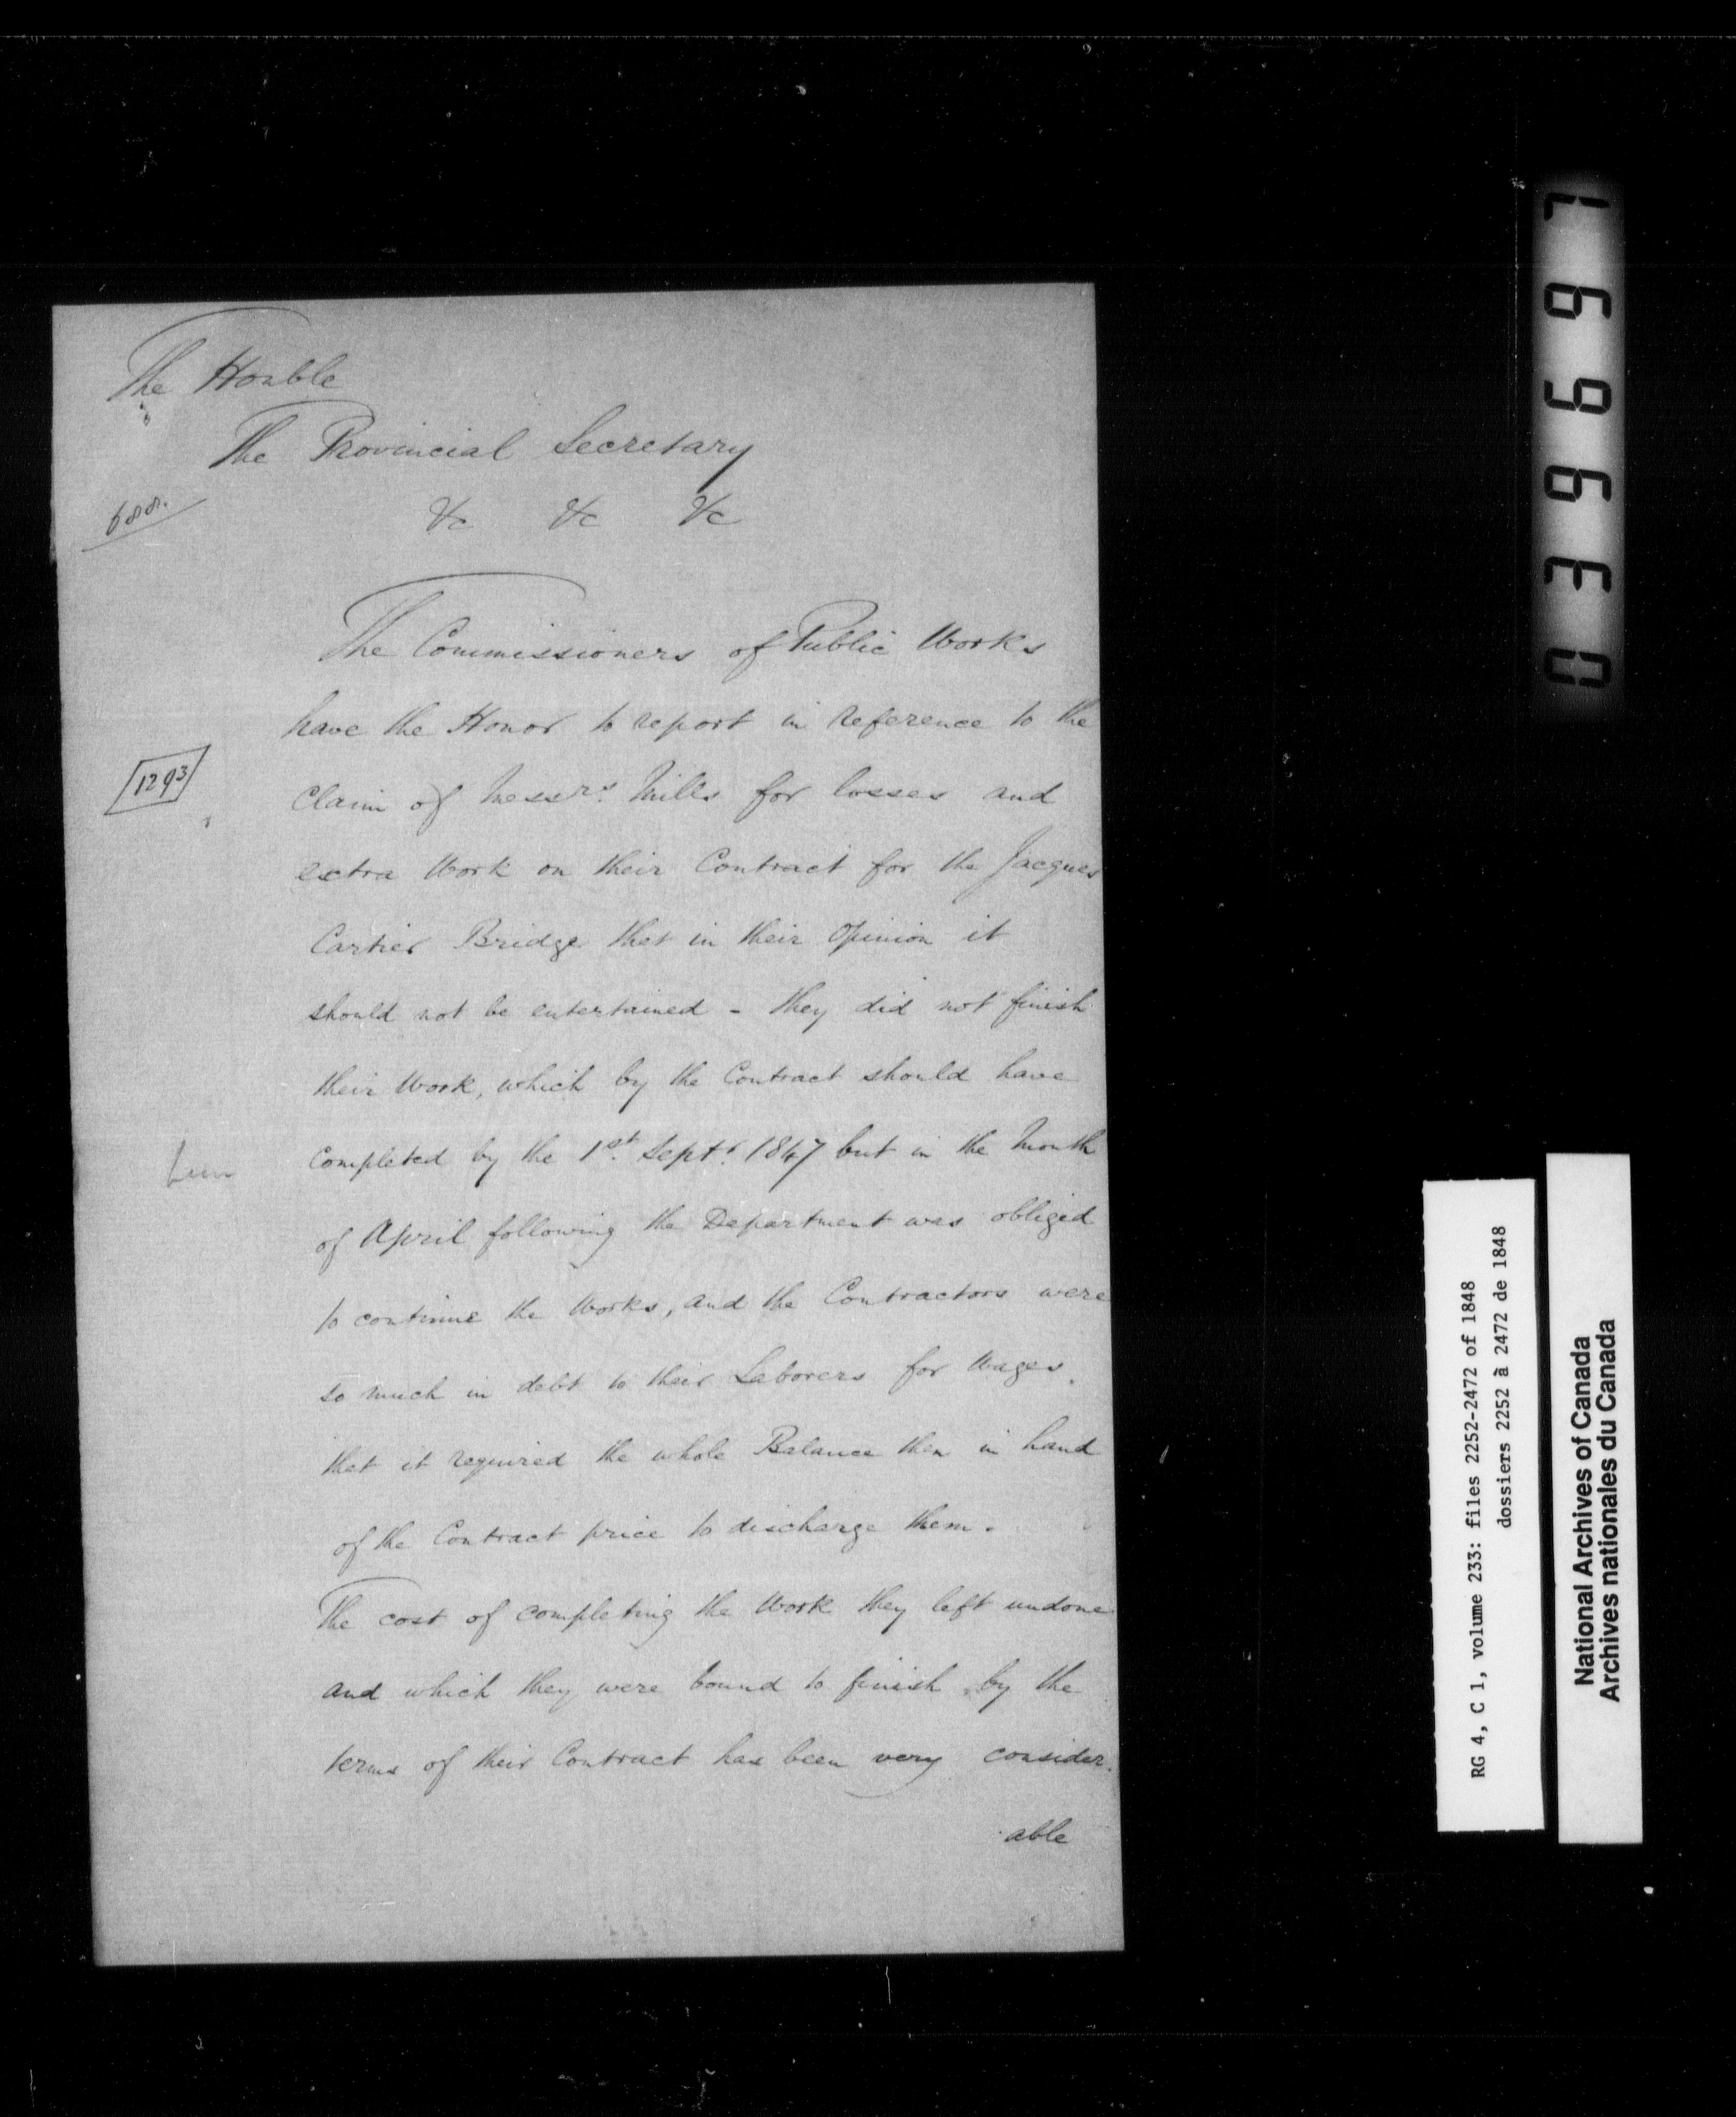 The Honble
The Provincial Secretary
&c &c &c
688.
The Commissioners of Public Works
have the Honor to report in reference to the
1293
Claim of Messrs. Mills for losses and
extra Work on their Contract for the Jacques
Cartier Bridge that in their Opinion it
should not be entertained - they did not finish
their Work, which by the Contract should have
completed by the 1st. Septr. 1847 but in the Month
of April following the Department was obliged
to continue the Works, and the Contractors were
so much in debt to their Laborers for Wages.
that it required the whole Balance then in hand
of the Contract price to discharge them.
The cost of completing the Work they left undone
and which they were bound to finish by the
terms of their Contract has been very consider.
able
039697
RG 4, C 1, volume 233: files 2252-2472 of 1848
dossiers 2252 à 2472 de 1848
National Archives of Canada
Archives nationales du Canada